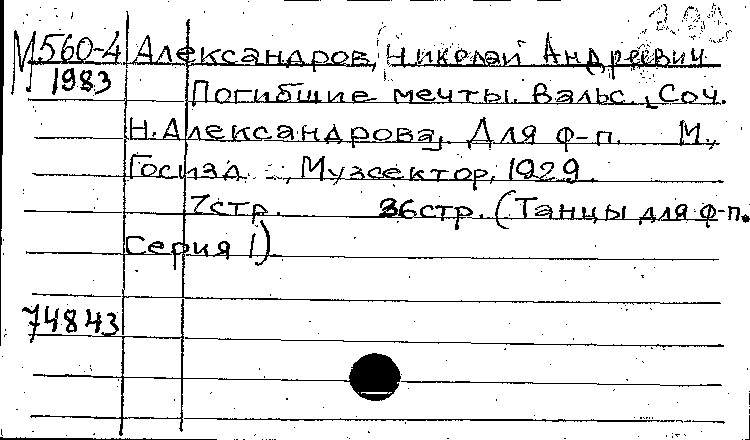 М560-4 Александров, Николай Андреевич
1983 Погибшие мечты. Вальс. [Соч.
Н. Александрова]. Для ф-п. М.,
Госизд., Музсектор, 1929.
7стр. 36стр. (Танцы для ф-п.
Серия 1).
74843